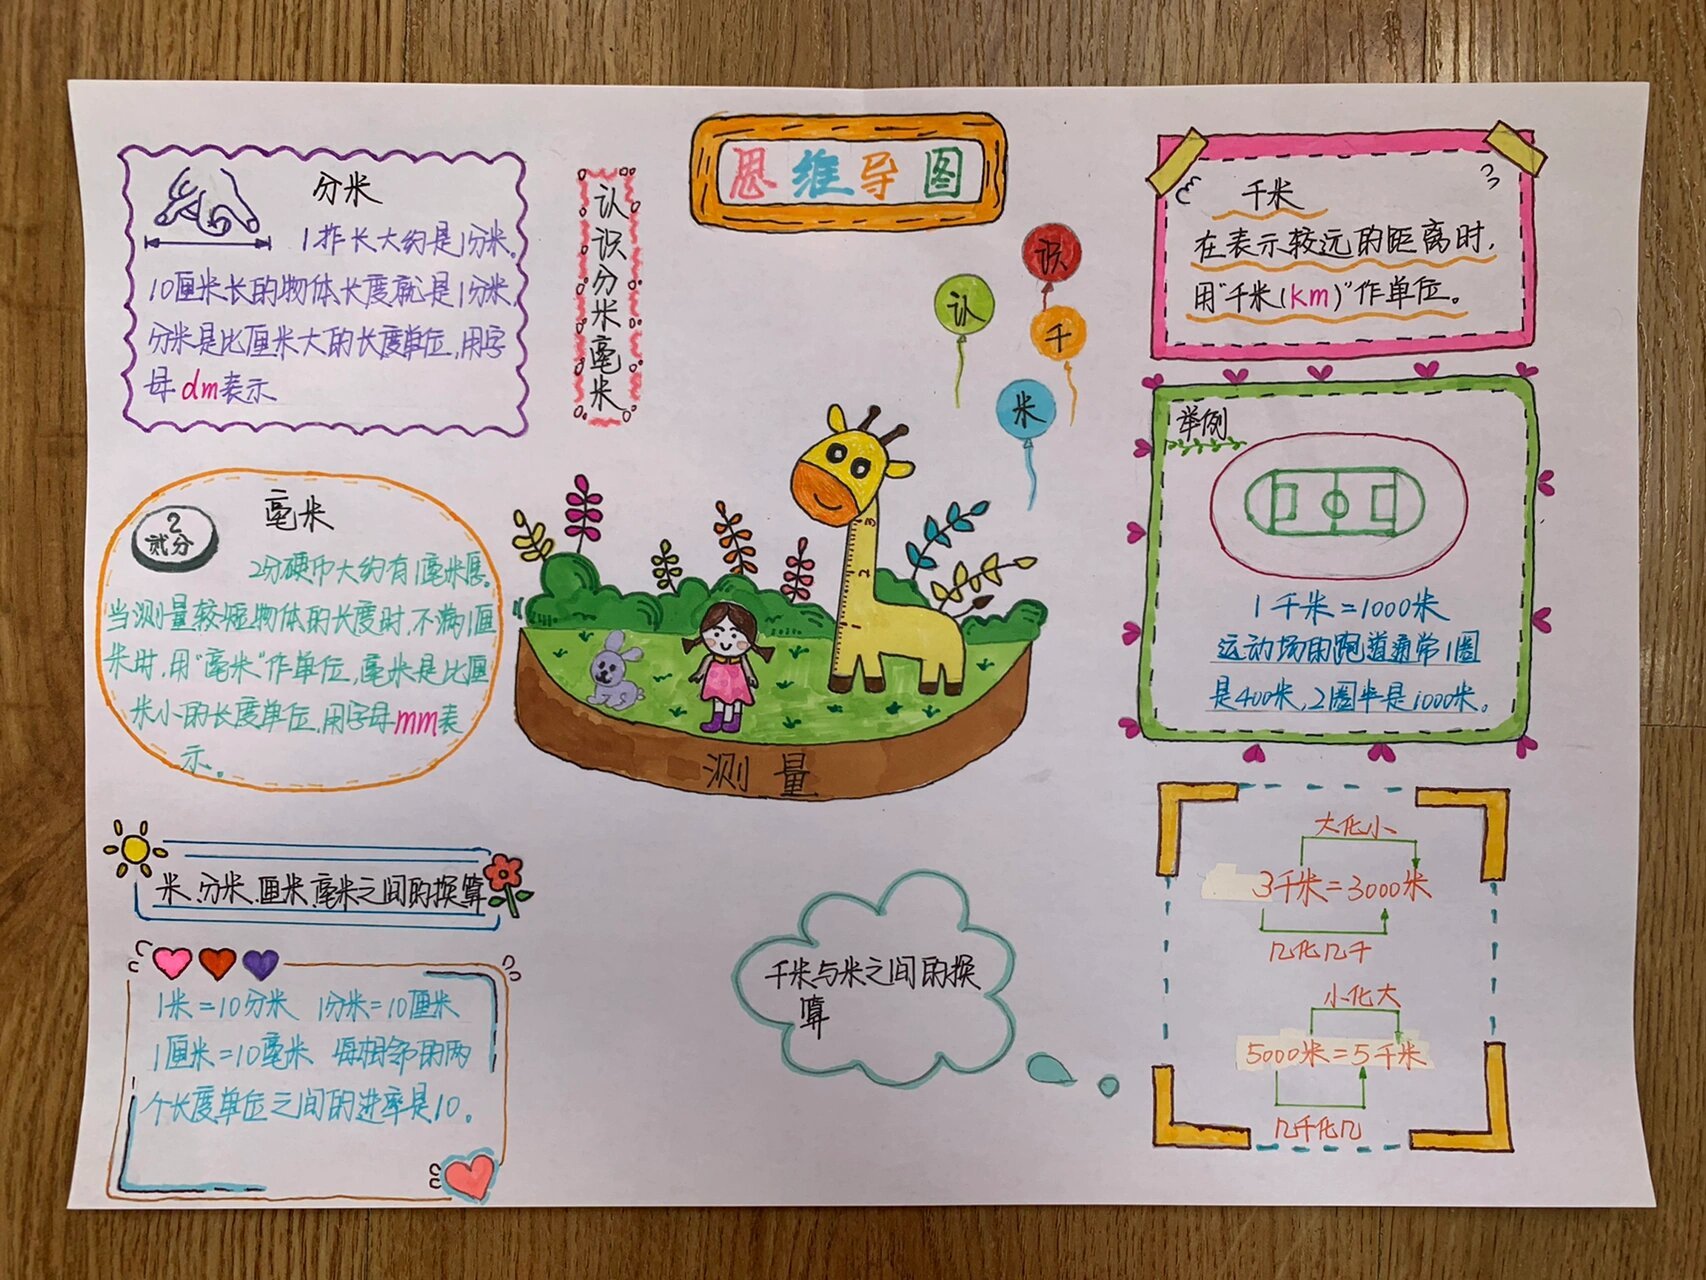 思维导图
分米
1拃长大约是1分米。
10厘米长的物体长度就是1分米。
分米是比厘米大的长度单位,用字
母dm表示
认识分米毫米
毫米
2 贰分
2分硬币大约有1毫米厚。
当测量较短物体的长度时,不满1厘
米时,用"毫米"作单位,毫米是比厘
米小的长度单位,用字母mm表
示。
米、分米、厘米、毫米之间的换算
1米=10分米 1分米=10厘米
1厘米=10毫米 每相邻的两
个长度单位之间的进率是10。
认识千米
3
2
1
测量
千米
在表示较远的距离时,
用"千米(km)"作单位。
举例
1千米=1000米
运动场的跑道通常1圈
是400米,2圈半是1000米。
千米与米之间的换
算
大化小
3千米=3000米
几化几千
小化大
5000米=5千米
几千化几